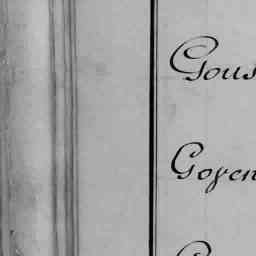 Gous
Goyen